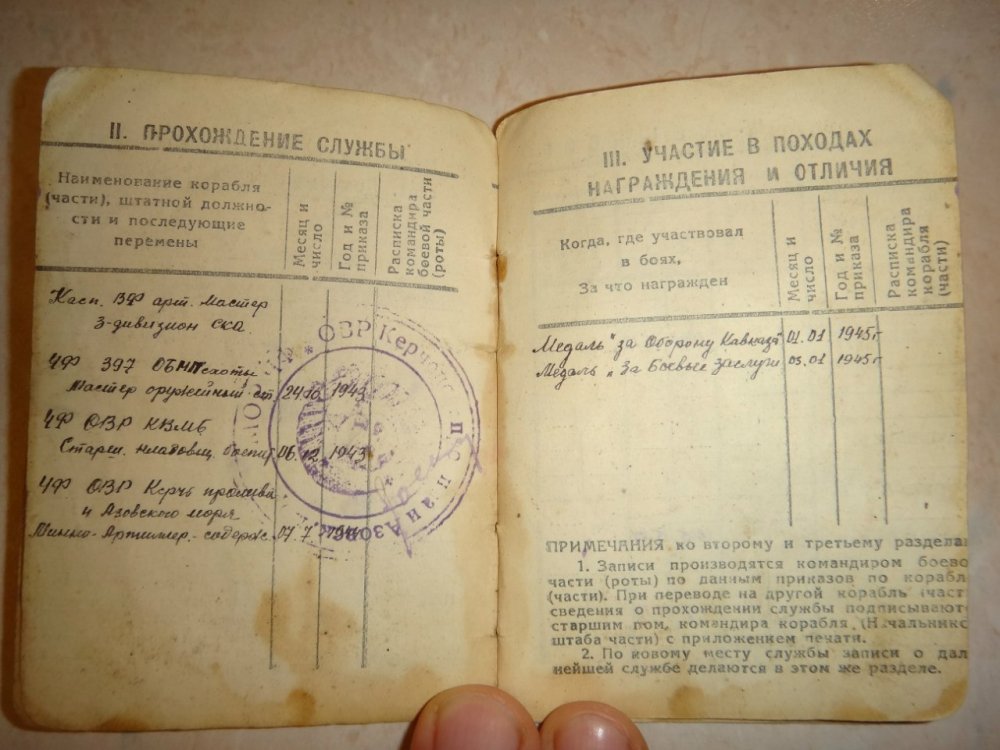 II. ПРОХОЖДЕНИЕ СЛУЖБЫ
Наименование корабля
(части), штатной должно-
сти и последующие
перемены
Месяц и
число
Год и №
приказа
Расписка
командира
боевой части
(роты)
Касп. ВФ арт. Мастер
3-дивизион СКА
ЧФ 397 ОБМПехоты
Мастер оружейный ст. 24.10. 1943
ЧФ ОВР КВМБ
Старш. кладовщ. боепит 06.12. 1943
ЧФ ОВР Керчь пролива
и Азовского моря
Минно-Артиллер. содерж. 07.7.
ОВР Керченс
Азовск
III. УЧАСТИЕ В ПОХОДАХ
НАГРАЖДЕНИЯ И ОТЛИЧИЯ
Когда, где участвовал
в боях,
За что награжден
Месяц и
число
Год и №
приказа
Расписка
командира
корабля
(части)
Медаль "за Оборону Кавказа" 01.01 1945г
Медаль "За Боевые Заслуги 03.01 1945г
ПРИМЕЧАНИЯ ко второму и третьему раздела
1. Записи производятся командиром боево
части (роты) по данным приказов по корабл
(части). При переводе на другой корабль (част
сведения о прохождении службы подписывают
старшим пом. командира корабля (Начальник
штаба части) с приложением печати.
2. По новому месту службы записи о дал
нейшей службе делаются в этом же разделе.